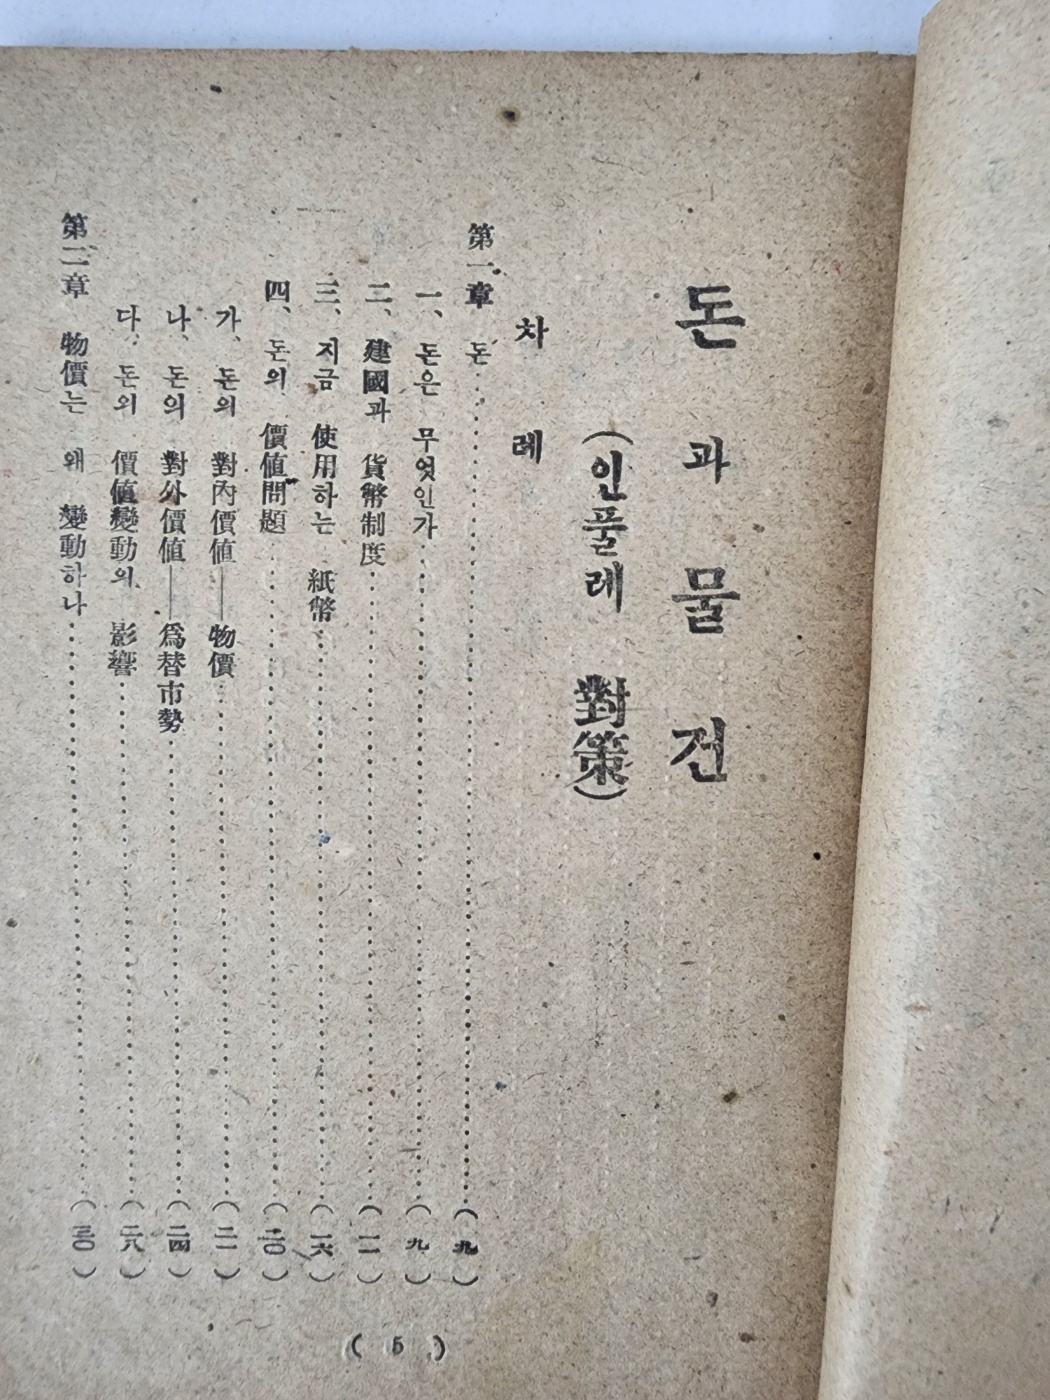 돈과물건
(인풀레 對策)
차례
第一章 돈……(九)
一、돈은 무엇인가……(九)
二、建國과 貨幣制度……(一一)
三、지금 使用하는 紙幣……(一六)
四、돈의 價値問題……(二〇)
가、돈의 對內價値――物價……(二一)
나、돈의 對外價値――爲替市勢……(二四)
다、돈의 價値變動의 影響……(二八)
第二章 物價는 왜 變動하나……(三〇)
( 5 )